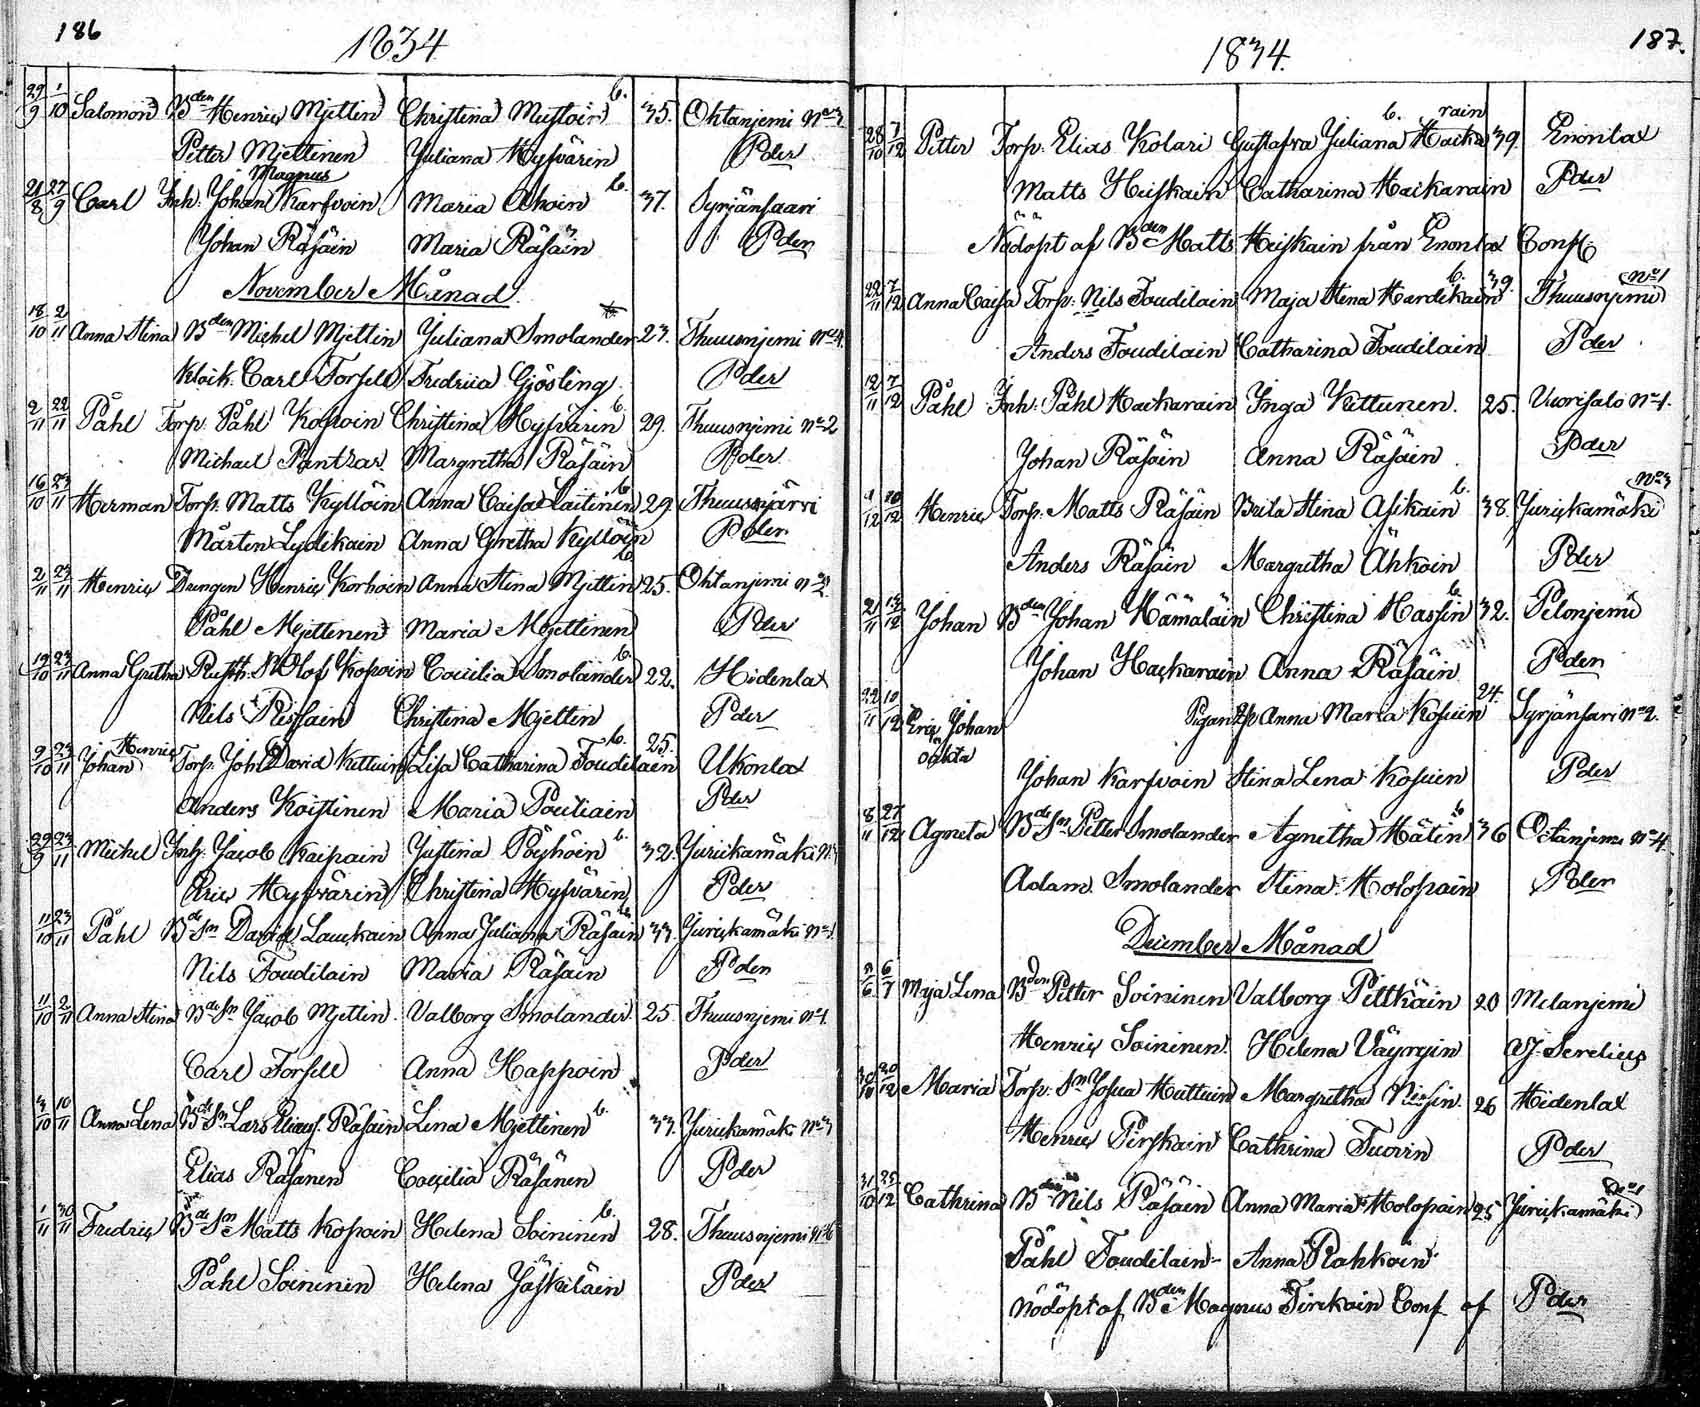 186
1834.
29/9 1/10 Salomon Bden Henric Mjettin Christina Mustoin b. 35. Ohtanjemi No 3
Petter Mjettinen Juliana Hyfvärin Pder
Magnus
21/8 27/9 Carl Inh: Johan Karfvoin Maria Ahoin b. 37. Syrjänsaari
Johan Räsäin Maria Räsäin Pder
November Månad.
18/10 2/11 Anna Stina Bden Michel Mjettin Juliana Smolander 23. Thuusnjemi No 4.
Klock. Carl Forsell Fredrica Gjösling Pder
2/11 22/11 Påhl Torp. Påhl Kosoin Christina Hyfvärin b. 29. Thuusnjemi No 2
Michael Pantzar Margretha Räsäin Pder
16/10 23/11 Herman Torp. Matts Kyllöin Anna Caisa Laitinen b. 29. Thuusjärvi
Mårten Lydikain Anna Gretha Kyllöin Pder
2/11 23/11 Henric Drengen Henric Korhoin Anna Stina Mjettin b. 25. Ohtanjemi No 2
Påhl Mjettinen Maria Mjettinen Pder
19/10 23/11 Anna Gretha Olof Kosoin Cecilia Smolander b. 22. Hidenlax
Nils Rissain Christina Mjettin Pder
Henric b. 25.
9/10 23/11 Johan Torp. Joh David Kettuin Lisa Catharina Toudilain Ukonlax
Anders Koistinen Maria Poutiain Pder
29/9 23/11 Michel Inh: Jacob Kaipain Justina Pöyhöin b. 32. Jurickamäki
Eric Hyfvärin Christina Hyfvärin Pder
11/10 23/11 Påhl Bde Sn David Lauckain Anna Juliana Räsäin 33. Jurickamäki No 1.
Nils Toudilain Maria Räsäin Pder
11/10 2/11 Anna Stina Bde Sn Jacob Mjettin Valborg Smolander 25. Thuusnjemi No 1.
Carl Forsell Anna Happoin Pder
3/10 10/11 Anna Lena Bde Sn Lars Eliass. Räsäin Lena Mjettinen b. 33. Jurickamäki No 3
Elias Räsänen Cecilia Räsänen Pder
1/11 30/11 Fredric Bde Sn Matts Kosoin Helena Soininen b. 28. Thuusnjemi No 6
Påhl Soininen Helena Jäskeläin Pder
187.
1834.
b. rain
28/10 7/12 Petter Torp. Elias Kolari Gustafva Juliana Hacka 39. Enonlax
Matts Heiskain Catharina Hackarain Pder
Nödöpt af Bden Matts Heiskain från Enonlax Conf.
22/11 7/12 Anna Caisa Torp: Nils Toudilain Maja Stina Hardikain b. 39. Thuusnjemi No 1
Anders Toudilain Catharina Toudilain Pder
12/11 7/12 Påhl Inh: Påhl Hackarain Inga Kettunen. 25. Vuorisalo No 1.
Johan Räsäin Anna Räsäin Pder
1/12 10/12 Henric Torp. Matts Räsäin Brita Stina Asikain b. 38. Jurickamäki No 3
Anders Räsäin Margretha Ähkäin Pder
21/11 13/12 Johan Bden Johan Hämäläin Christina Hassin b. 32. Pelonjemi
Johan Hackarain Anna Räsäin Pder
22/11 10/12 Eric Johan Pigan Anna Maria Kosuin 24. Syrjänsari No 2.
oäkta
Johan Karfvain Stina Lena Kosuin Pder
8/11 27/12 Agneta Bde Sn Petter Smolander Agnetha Hätin b 36 Octanjemi No 4.
Adam Smolander Stina Holopain Pder
December Månad
5/6 6/7 Maja Lena Bden Petter Soininen Valborg Pettkäin 20 Melanjemi
Henric Soininen Helena Väyrynin AJ. Serelius
30/10 20/12 Maria Torp. Sn Josua Huttuin Margretha Nisin. 26 Hidenlax
Henric Pirskain Cathrina Tuovin Pder
31/10 25/12 Cathrina Bden Nils Räsäin Anna Maria Holopain 25 Jurickamäki No 1
Påhl Toudilain Anna Rahkoin
Nödöpt af Bden Magnus Tirckain Conf af Pder